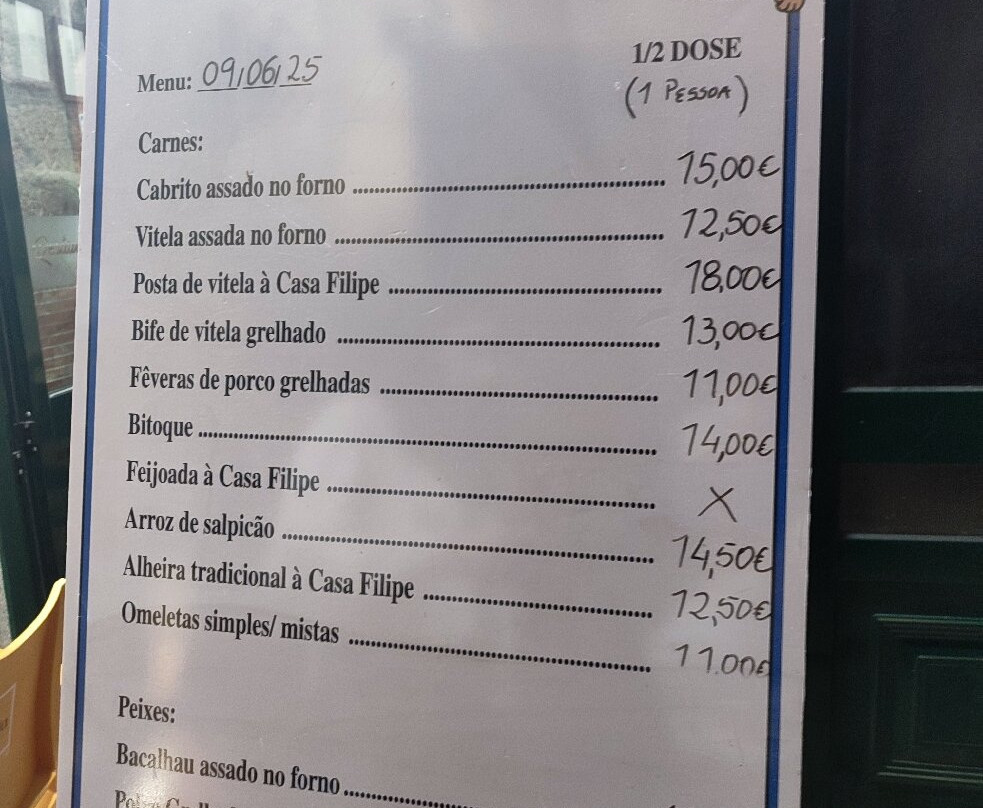 1/2 DOSE
Menu: 09/06/25 (1 PESSOA)
Carnes:
Cabrito assado no forno 15,00€
Vitela assada no forno 12,50€
Posta de vitela à Casa Filipe 18,00€
Bife de vitela grelhado 13,00€
Fêveras de porco grelhadas 11,00€
Bitoque 14,00€
Feijoada à Casa Filipe X
Arroz de salpicão 14,50€
Alheira tradicional à Casa Filipe 12,50€
Omeletas simples/ mistas 11.00€
Peixes:
Bacalhau assado no forno